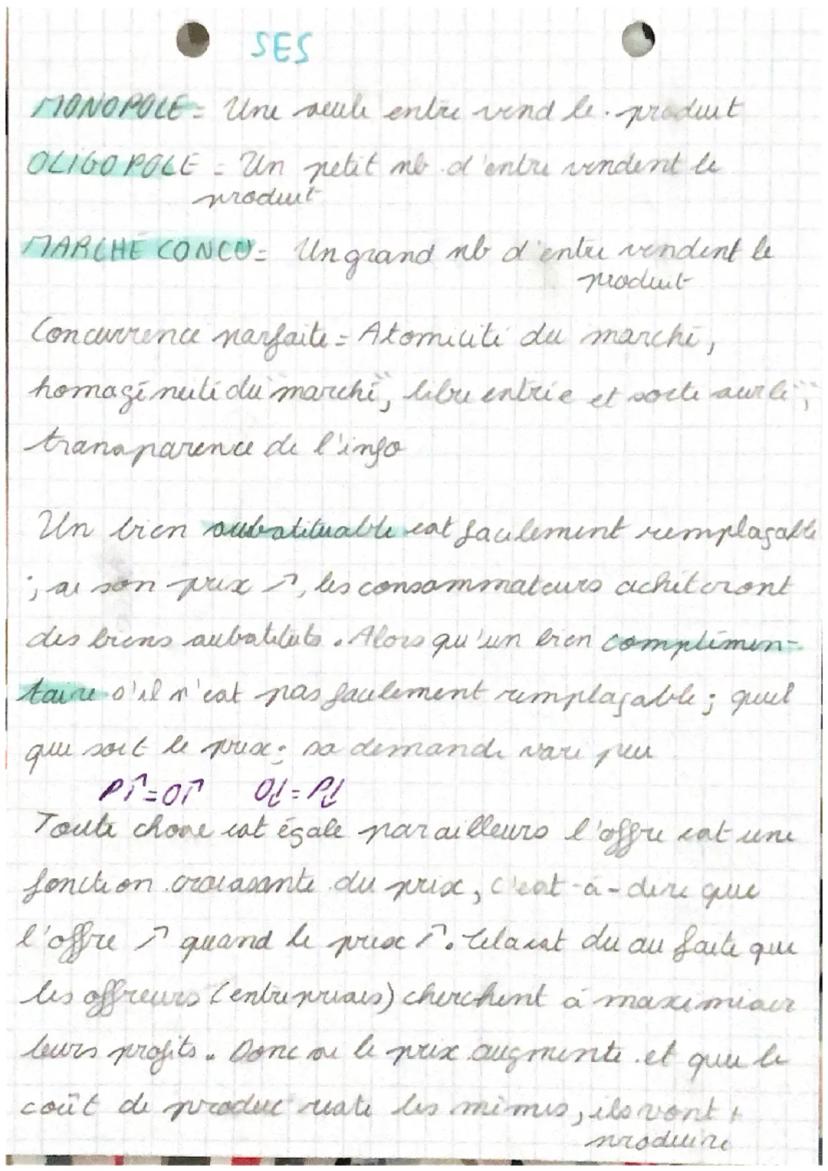 SES
MONOPOLE = Une seule entre vend le produit
OLIGOPOLE = Un petit nb d'entre vendent le
produit
MARCHÉ CONCU = Un grand nb d'entre vendent le
produit
Concurrence parfaite = Atomicité du marché,
homogénéité du "marché", libre entrée et sorte sur le "",
transparence de l'info
Un bien substituable est facilement remplaçable
; si son prix ↗, les consommateurs achèteront
des biens substituts. Alors qu'un bien complémen-
taire s'il n'est pas facilement remplaçable ; quel
que soit le prix ; sa demande vari peu
P↑=O↑ O↓=P↓
Toute chose est égale par ailleurs l'offre est une
fonction croissante du prix, c'est-à-dire que
l'offre ↗ quand le prix ↗. Cela est du au faite que
les offreurs (entreprises) cherchent à maximiser
leurs profits. Donc si le prix augmente et que le
coût de produc° reste les mêmes, ils vont +
produire